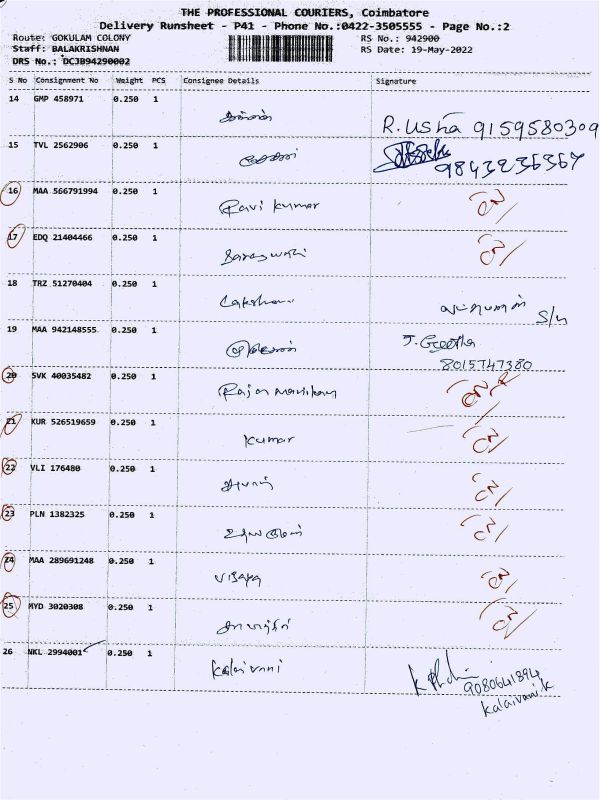 THE PROFESSIONAL COURIERS, Coimbatore
Delivery Runsheet - P41 - Phone No.:0422-3505555 - Page No.:2
Route: GOKULAM COLONY RS No.: 942900
Staff: BALAKRISHNAN RS Date: 19-May-2022
DRS No.: DCJB94290002
S No Consignment No Weight PCS Consignee Details Signature
14 GMP 458971 0.250 1
R. Usha 9159580309
15 TVL 2562906 0.250 1
9843236367
16 MAA 566791994 0.250 1 Ravi kumar
17 EDQ 21404466 0.250 1 Saraswathi
18 TRZ 51270404 0.250 1 Lakshmi
S/n
19 MAA 942148555 0.250 1 J. Geetha
8015747380
20 SVK 40035482 0.250 1 Rajamanikam
21 KUR 526519659 0.250 1 kumar
22 VLI 176480 0.250 1
23 PLN 1382325 0.250 1
24 MAA 289691248 0.250 1 vijaya
25 MYD 3020308 0.250 1
26 NKL 2994001 0.250 1 Kalaivani
9080641894
Kalaivani k